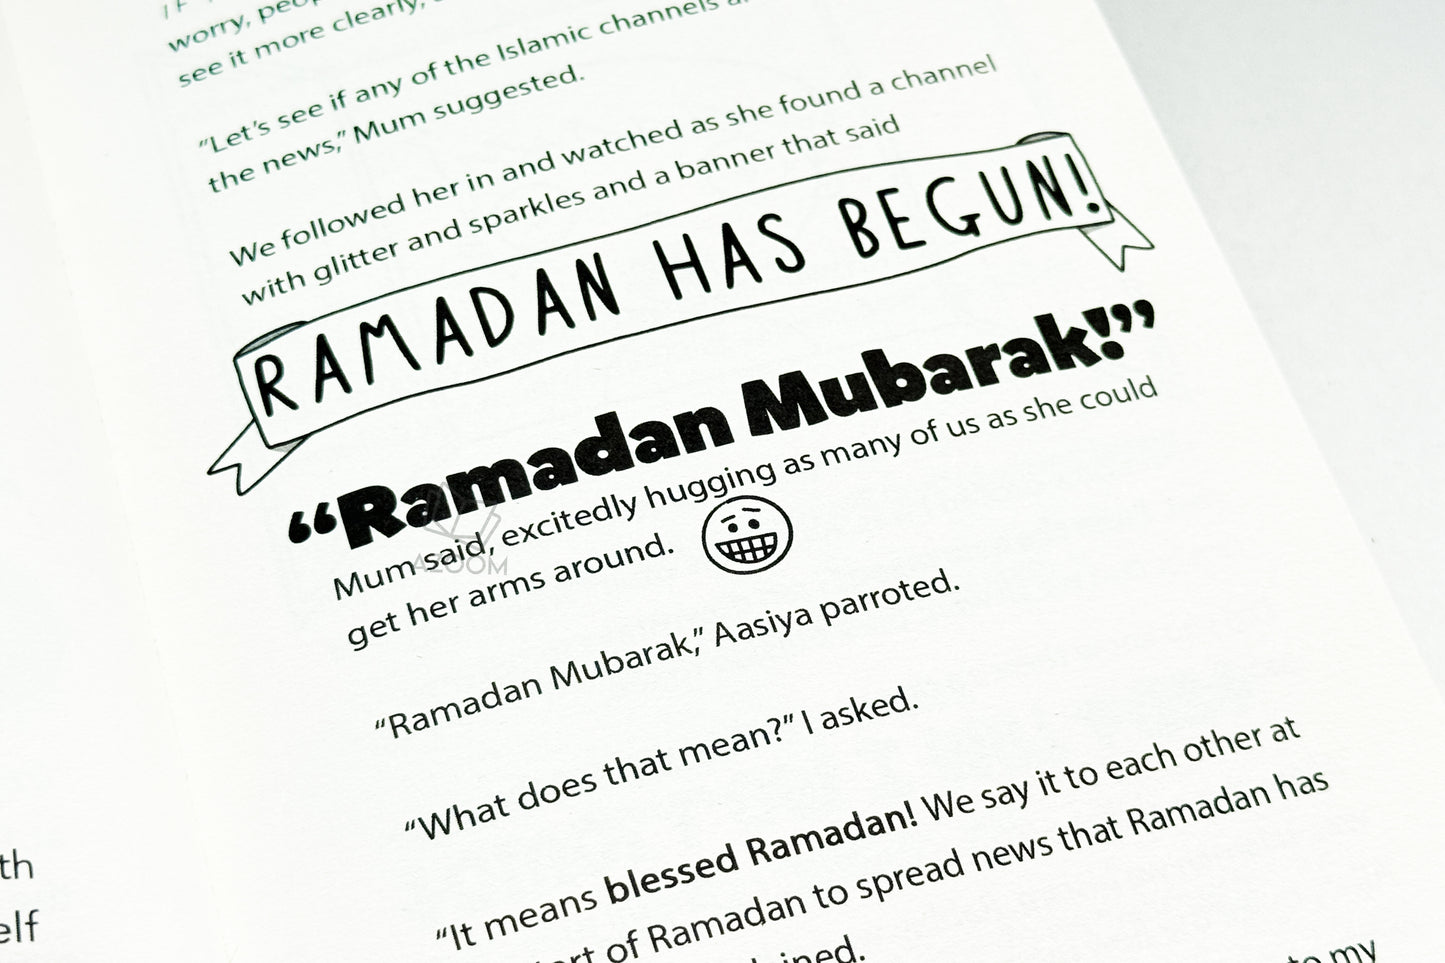 worry,
see it more clearly,
"Let's see if any of the Islamic channels
the news," Mum suggested.
We followed her in and watched as she found a channel
with glitter and sparkles and a banner that said
RAMADAN HAS BEGUN!
“Ramadan Mubarak!”
Mum said, excitedly hugging as many of us as she could
get her arms around.
"Ramadan Mubarak," Aasiya parroted.
"What does that mean?" I asked.
"It means blessed Ramadan! We say it to each other at
of Ramadan to spread news that Ramadan has
to my
th
elf
AZOOM